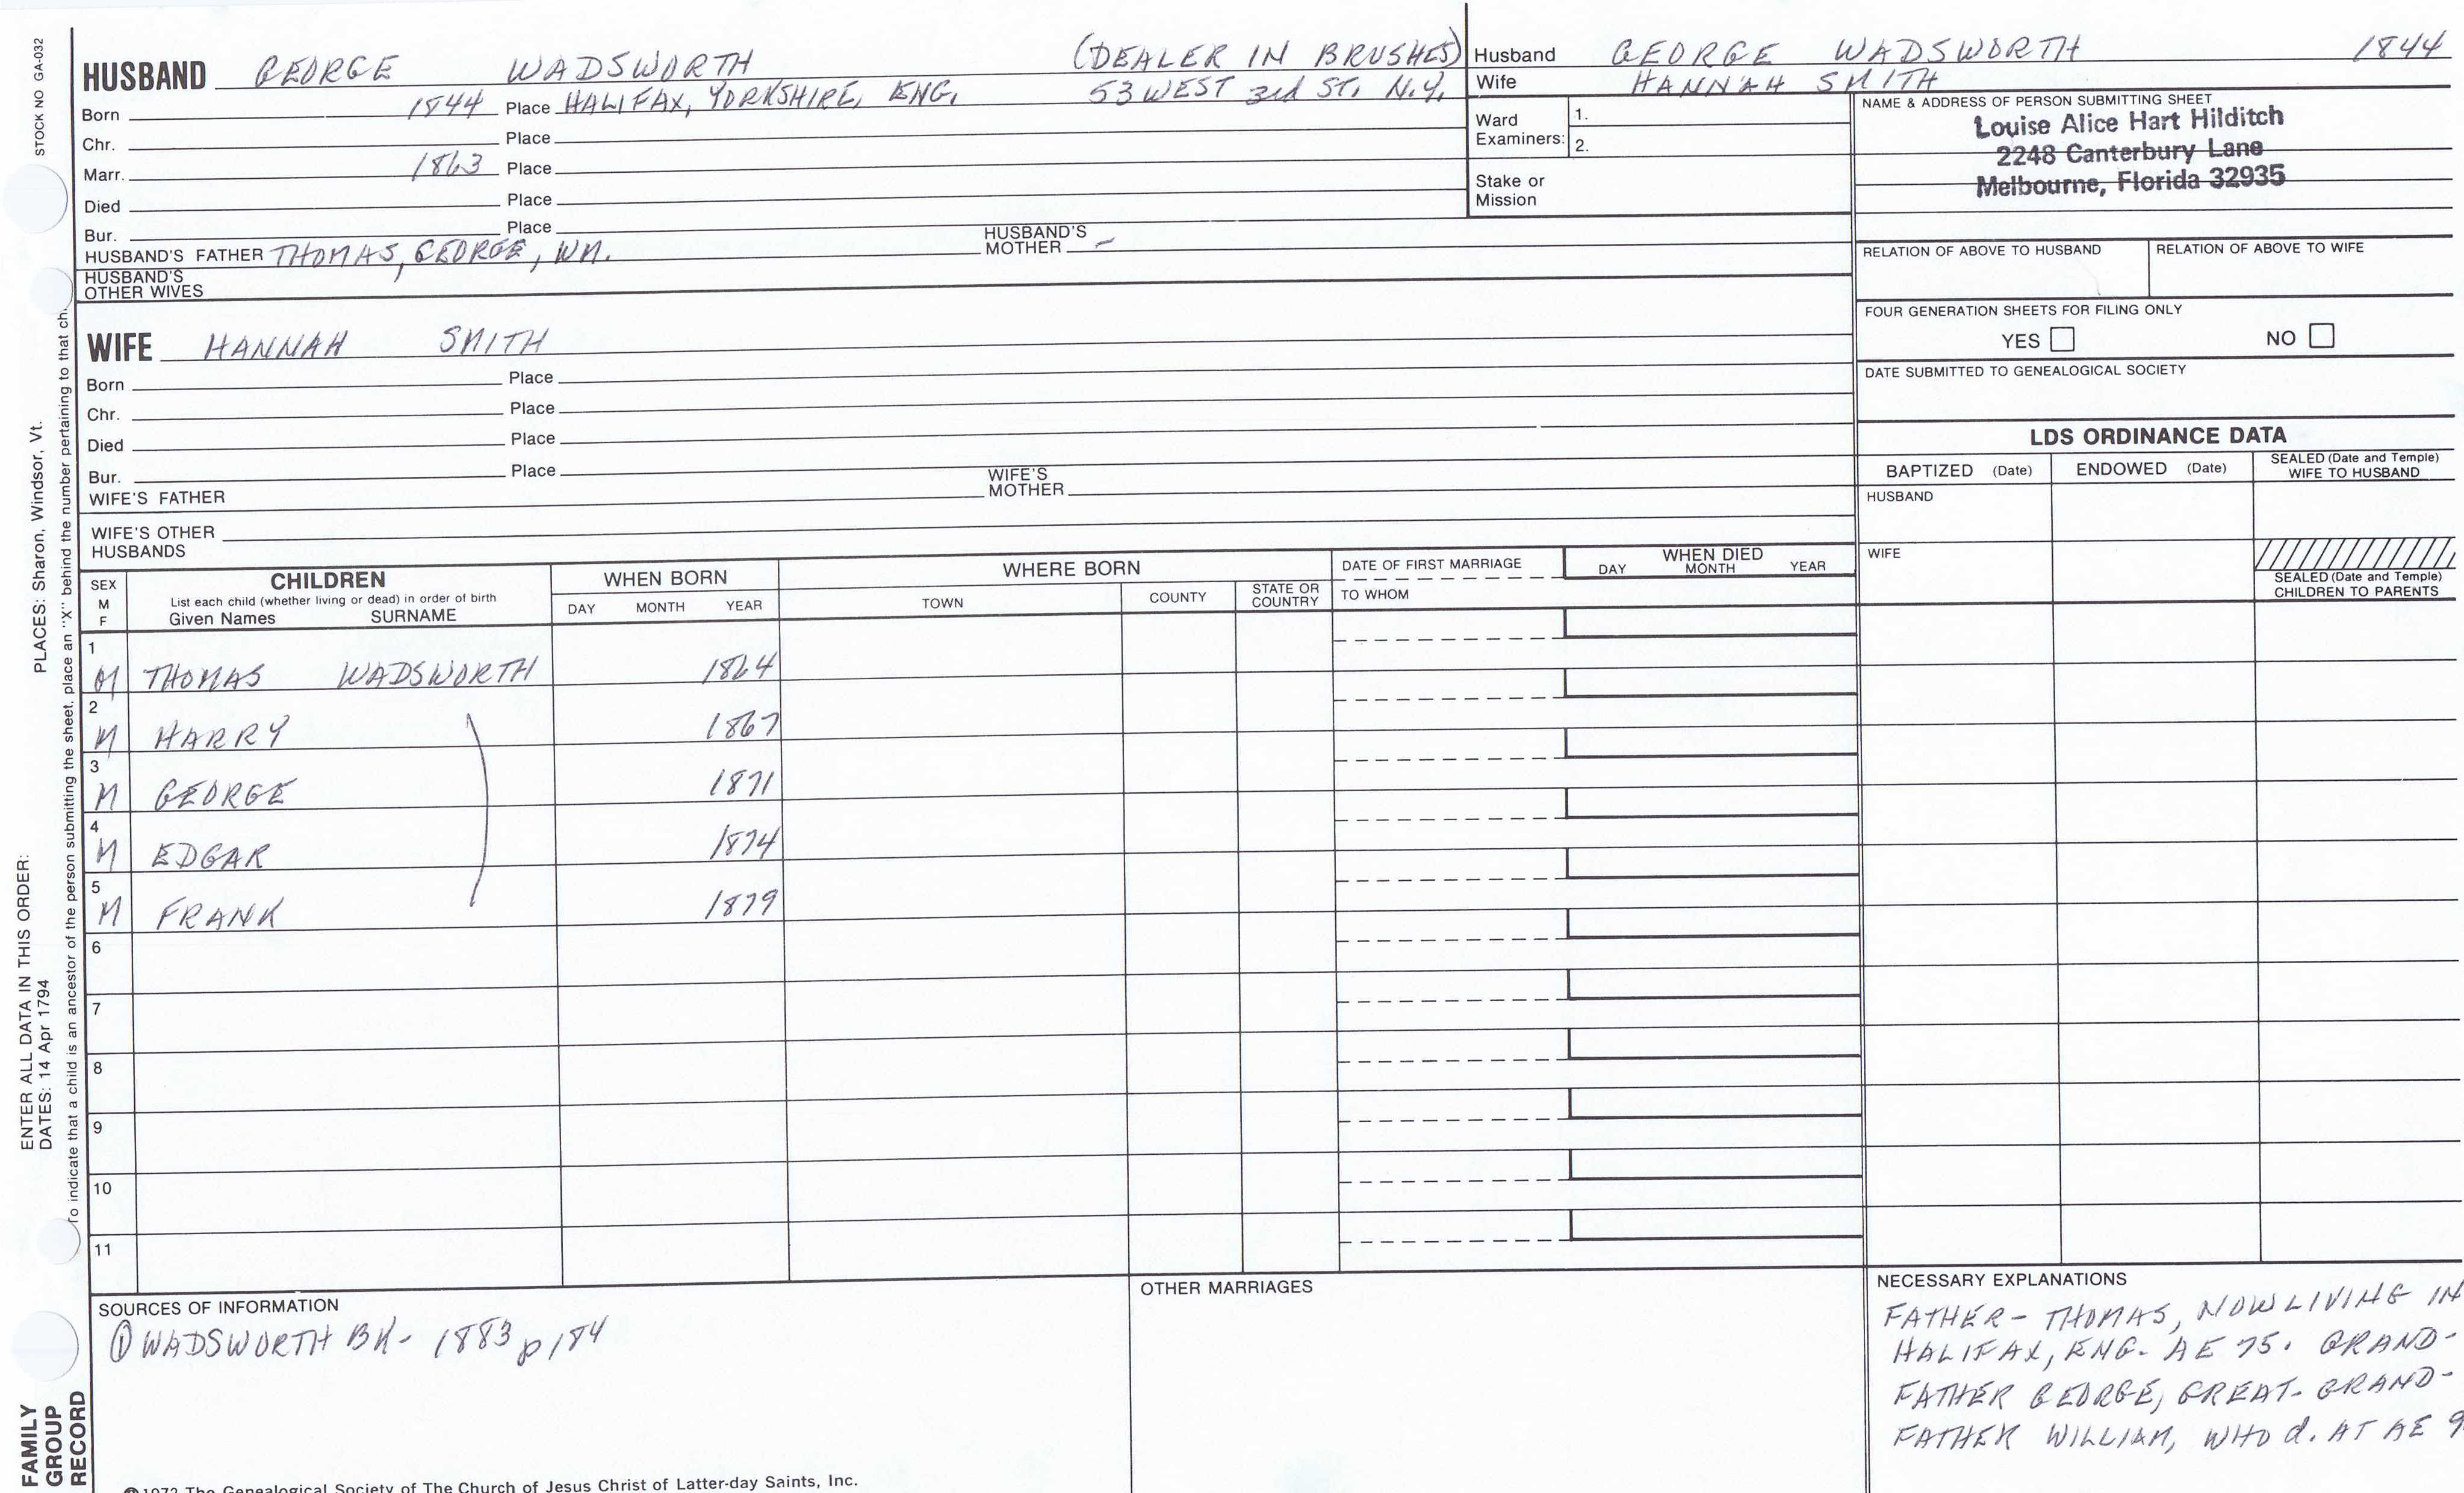 STOCK NO GA-032
PLACES: Sharon, Windsor, Vt.
ENTER ALL DATA IN THIS ORDER:
DATES: 14 Apr 1794
To indicate that a child is an ancestor of the person submitting the sheet, place an "X" behind the number pertaining to that ch
FAMILY
GROUP
RECORD
HUSBAND GEORGE WADSWORTH (DEALER IN BRUSHES)
Born 1844 Place HALIFAX, YORKSHIRE, ENG. 53 WEST 3rd ST. N.Y.
Chr. Place
Marr. 1863 Place
Died Place
Bur. Place
HUSBAND'S FATHER THOMAS, GEORGE, WM. HUSBAND'S MOTHER –
HUSBAND'S
OTHER WIVES
WIFE HANNAH SMITH
Born Place
Chr. Place
Died Place
Bur. Place
WIFE'S FATHER WIFE'S MOTHER
WIFE'S OTHER
HUSBANDS
Husband GEORGE WADSWORTH 1844
Wife HANNAH SMITH
Ward
Examiners:
1.
2.
Stake or
Mission
NAME & ADDRESS OF PERSON SUBMITTING SHEET
Louise Alice Hart Hilditch
2248 Canterbury Lane
Melbourne, Florida 32935
RELATION OF ABOVE TO HUSBAND RELATION OF ABOVE TO WIFE
FOUR GENERATION SHEETS FOR FILING ONLY
YES NO
DATE SUBMITTED TO GENEALOGICAL SOCIETY
LDS ORDINANCE DATA
BAPTIZED (Date) ENDOWED (Date) SEALED (Date and Temple)
WIFE TO HUSBAND
HUSBAND
WIFE
SEALED (Date and Temple)
CHILDREN TO PARENTS
SEX
M
F
CHILDREN
List each child (whether living or dead) in order of birth
Given Names SURNAME
WHEN BORN
DAY MONTH YEAR
WHERE BORN
TOWN COUNTY STATE OR COUNTRY
DATE OF FIRST MARRIAGE
TO WHOM
WHEN DIED
DAY MONTH YEAR
1
M THOMAS WADSWORTH 1864
2
M HARRY 1867
3
M GEORGE 1871
4
M EDGAR 1874
5
M FRANK 1879
6
7
8
9
10
11
SOURCES OF INFORMATION
① WADSWORTH BK- 1883 p184
OTHER MARRIAGES
NECESSARY EXPLANATIONS
FATHER - THOMAS, NOW LIVING IN
HALIFAX, ENG. AE 75. GRAND-
FATHER GEORGE, GREAT-GRAND-
FATHER WILLIAM, WHO d. AT AE 9
1972 The Genealogical Society of The Church of Jesus Christ of Latter-day Saints, Inc.